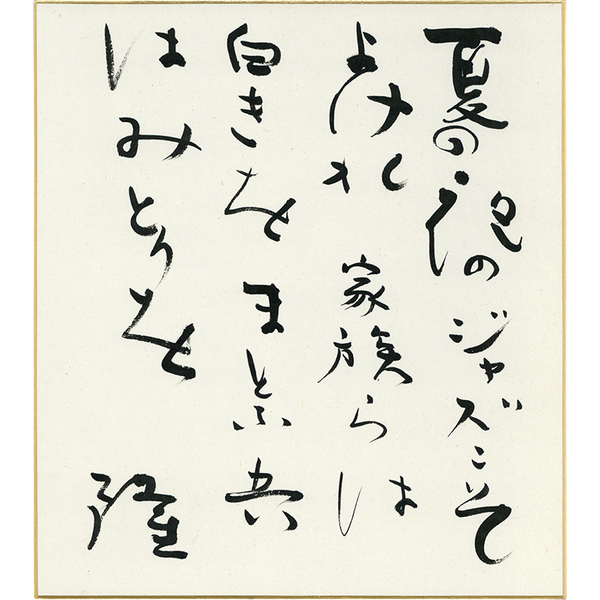 夏の夜のジャズこそ
よけれ 家族らは
白きをまとふ 兵
はみとりを 隆